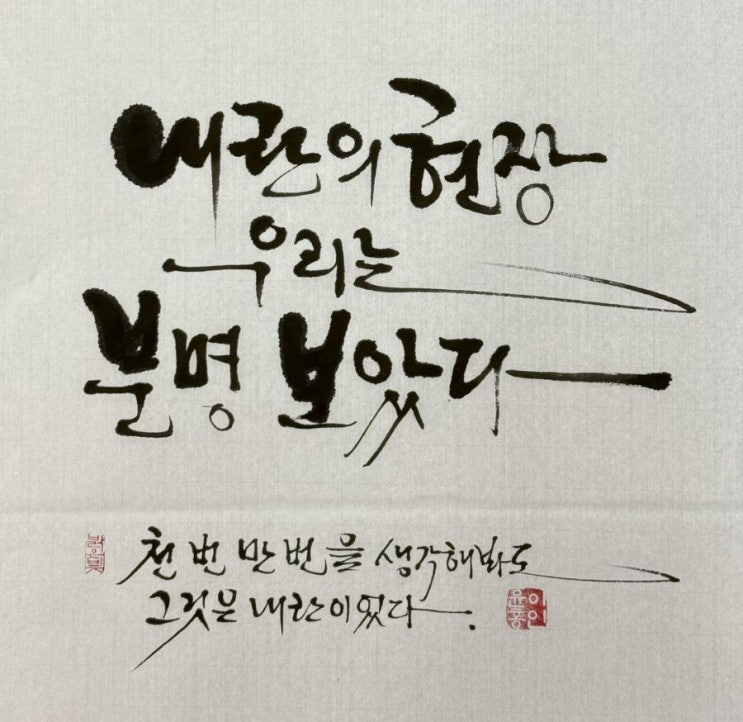 내란의 현장
우리는
분명 보았다
천 번 만 번을 생각해봐도
그것은 내란이었다.